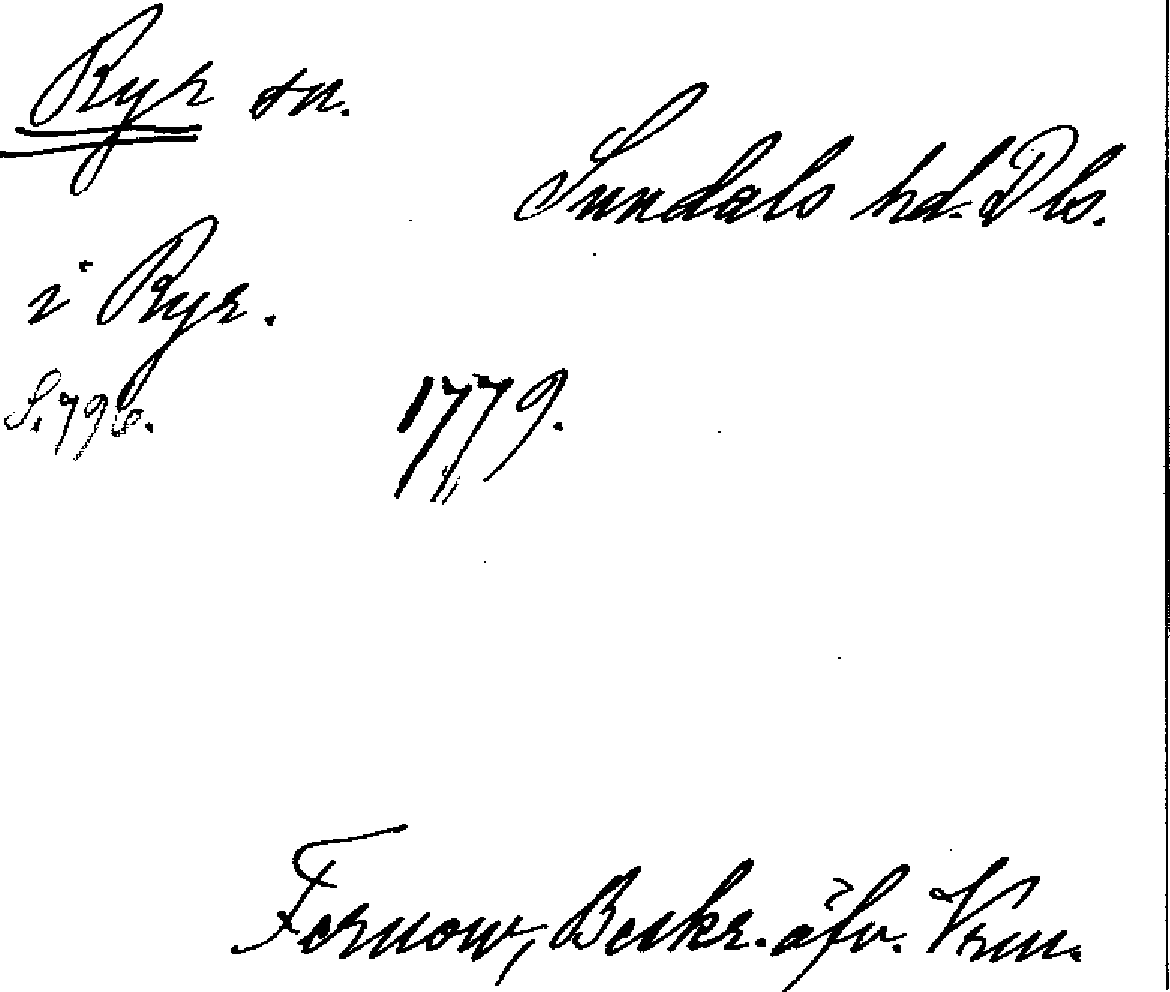 Ryr sn.
Sundals hd. Dls.
i Ryr.
S. 796.
1779.
Fernow, Beskr. öfv. Vrm.